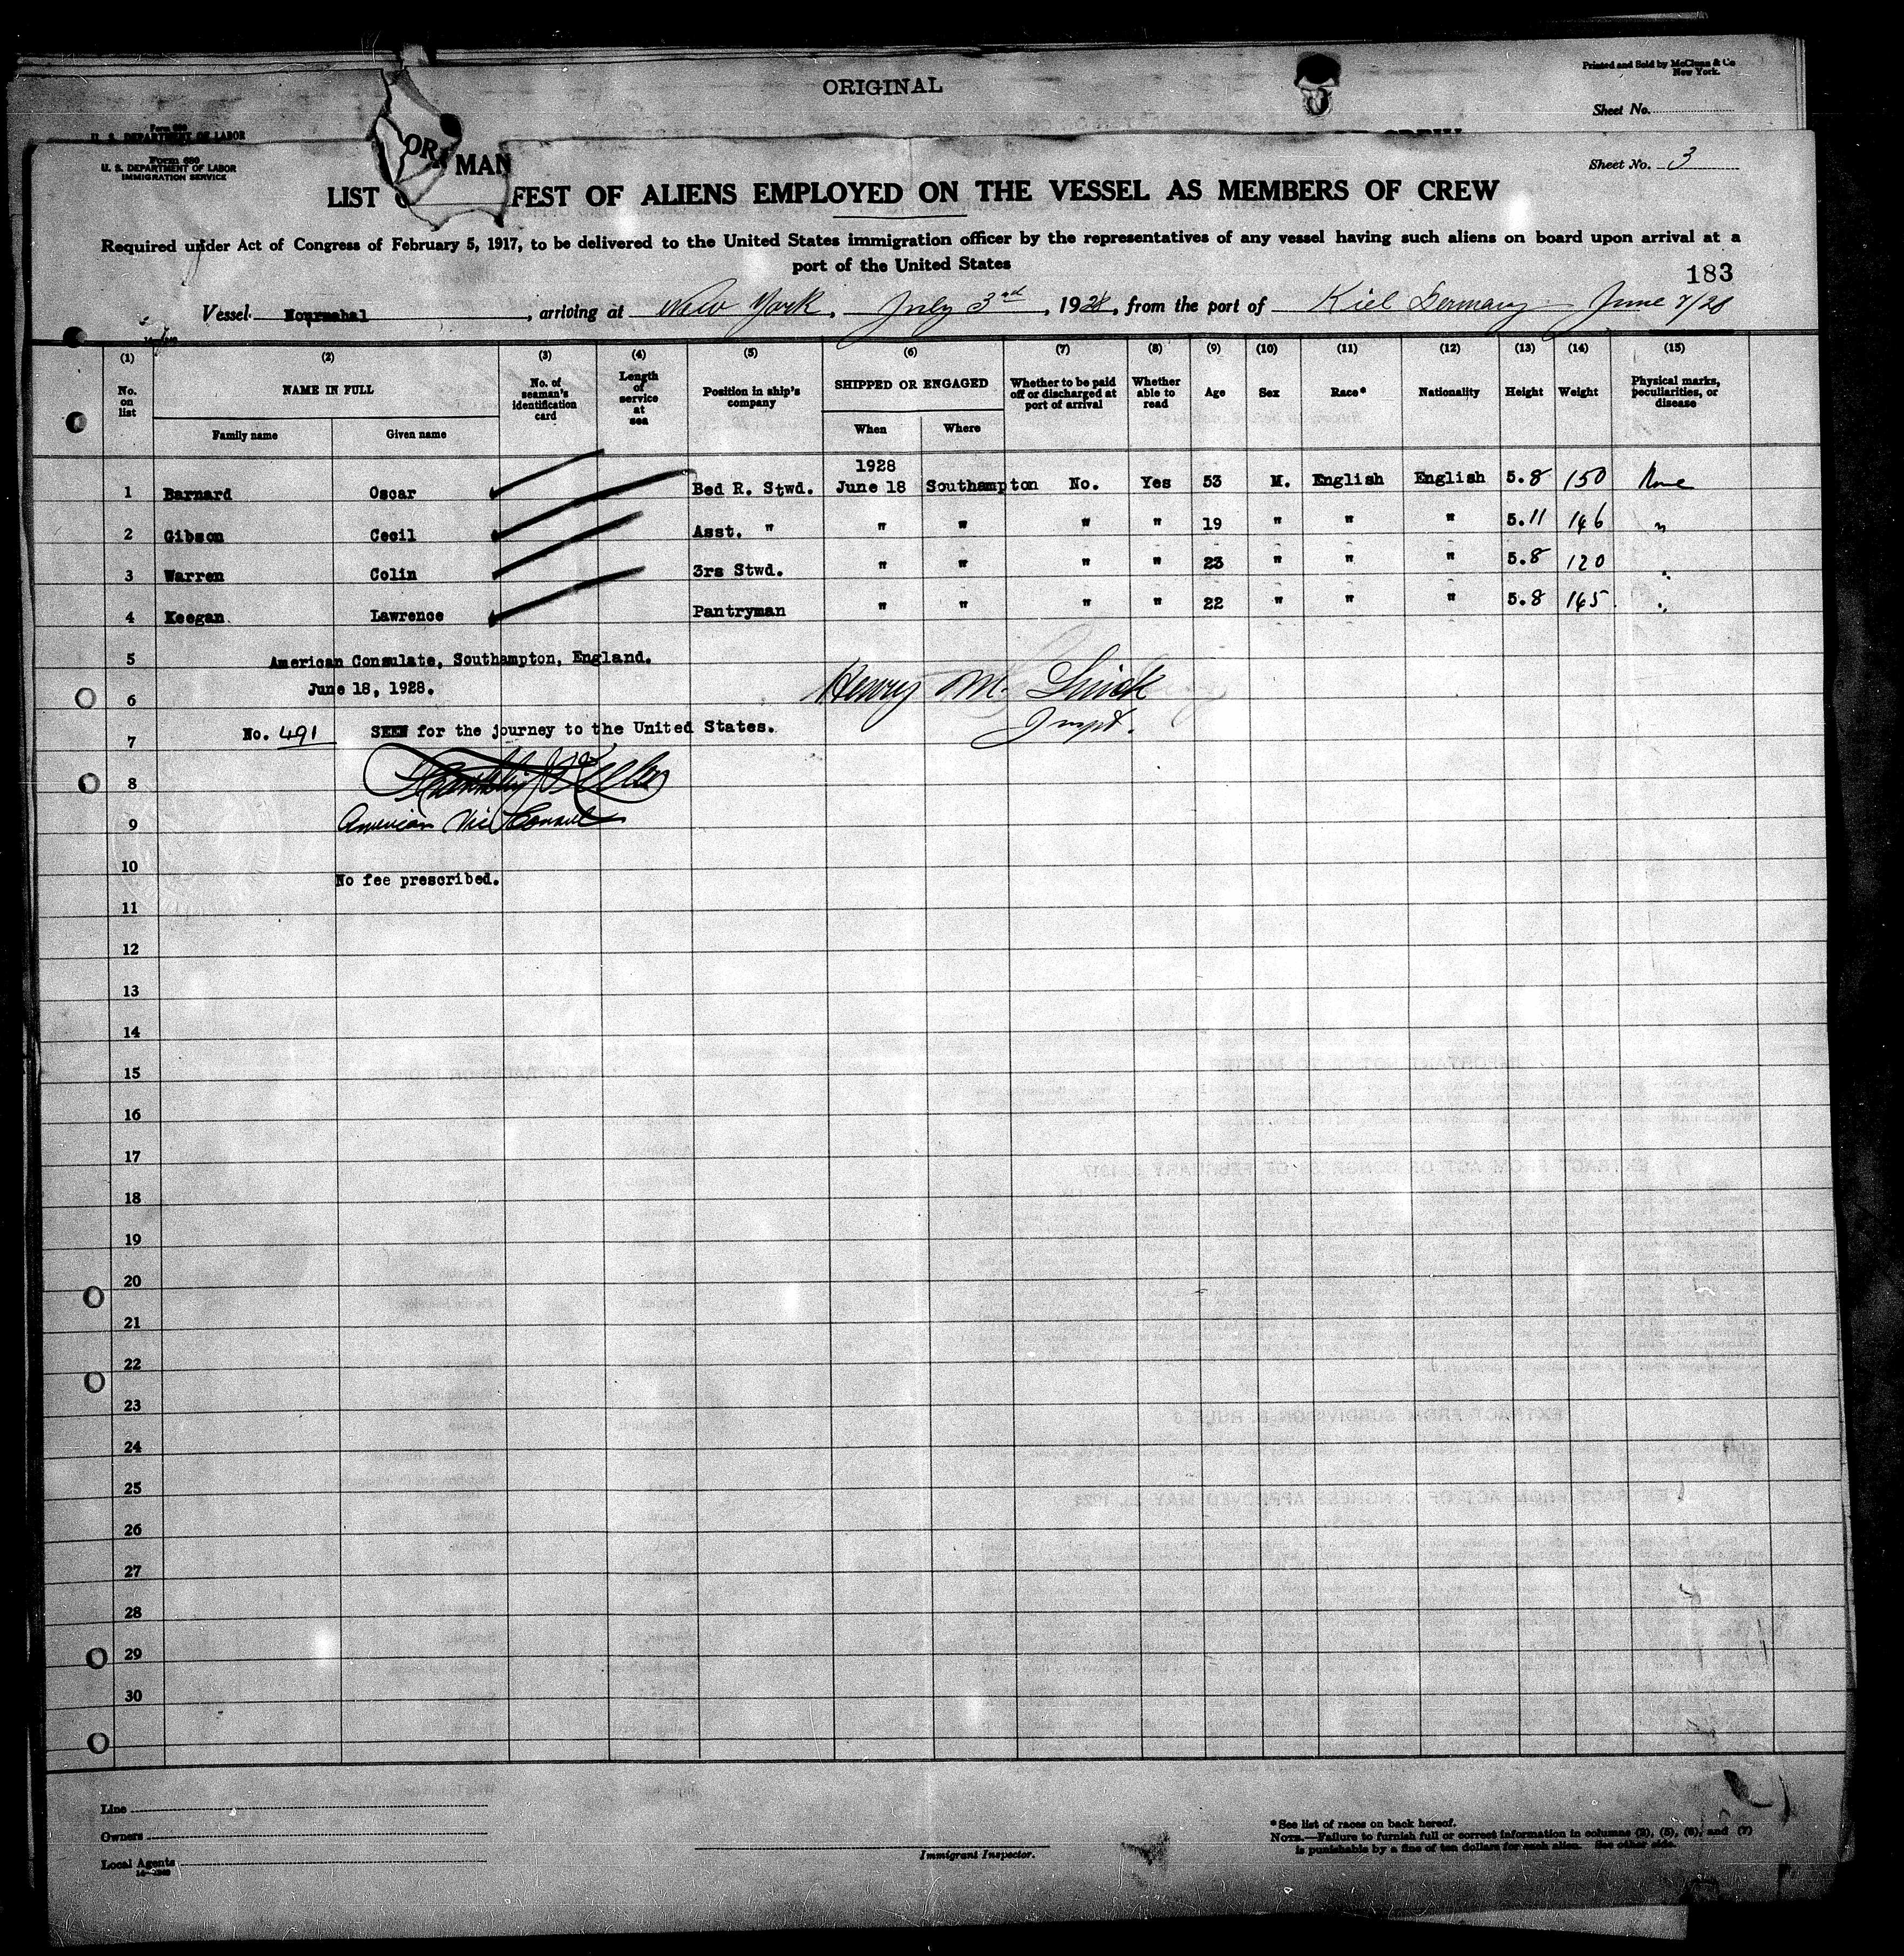 ORIGINAL
Printed and Sold by McClunn & Co
New York.
Sheet No.
Form 680
U. S. DEPARTMENT OF LABOR
Form 680
U. S. DEPARTMENT OF LABOR
IMMIGRATION SERVICE
OR MAN
Sheet No. 3
LIST FEST OF ALIENS EMPLOYED ON THE VESSEL AS MEMBERS OF CREW
Required under Act of Congress of February 5, 1917, to be delivered to the United States immigration officer by the representatives of any vessel having such aliens on board upon arrival at a
port of the United States
183
Vessel Nourmahal, arriving at New York, July 3rd, 1928, from the port of Kiel Germany June 7/28
(1) (2) (3) (4) (5) (6) (7) (8) (9) (10) (11) (12) (13) (14) (15)
No. on list NAME IN FULL No. of seaman's identification card Length of service at sea Position in ship's company SHIPPED OR ENGAGED Whether to be paid off or discharged at port of arrival Whether able to read Age Sex Race* Nationality Height Weight Physical marks, peculiarities, or disease
Family name Given name When Where
1928
1 Barnard Oscar Bed R. Stwd. June 18 Southampton No. Yes 53 M. English English 5.8 150 None
2 Gibson Cecil Asst. " " " " " 19 " " " 5.11 146 "
3 Warren Colin 3rs Stwd. " " " " 23 " " " 5.8 120 "
4 Keegan Lawrence Pantryman " " " " 22 " " " 5.8 145 "
5 American Consulate, Southampton, England.
6 June 18, 1928.
Henry M.
7 No. 491 SEEN for the journey to the United States.
Inspt.
8
9 American Vice Consul
10 No fee prescribed.
11
12
13
14
15
16
17
18
19
20
21
22
23
24
25
26
27
28
29
30
Line
Owners
Local Agents
Immigrant Inspector.
*See list of races on back hereof.
NOTE.—Failure to furnish full or correct information in columns (2), (5), (6), and (7)
is punishable by a fine of ten dollars for each alien. See other side.